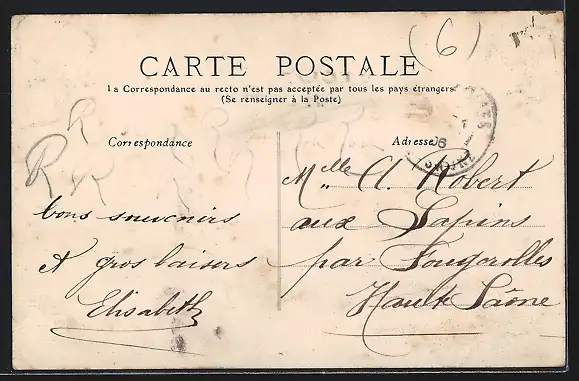 (6)
CARTE POSTALE
La Correspondance au recto n'est pas acceptée par tous les pays étrangers
(Se renseigner à la Poste)
Correspondance
Adresse
bons souvenirs
et gros baisers
Elisabeth
Melle A. Robert
aux Sapins
par Fougerolles
Haute Saône